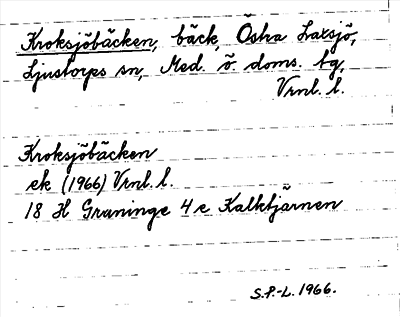 Kroksjöbäcken, bäck, Östra Laxsjö,
Ljustorps sn, Med. ö. doms. tg,
Vrnl. l.
Kroksjöbäcken
ek (1966) Vrnl. l.
18 H Graninge 4 e Kalktjärnen
S.P.-L. 1966.